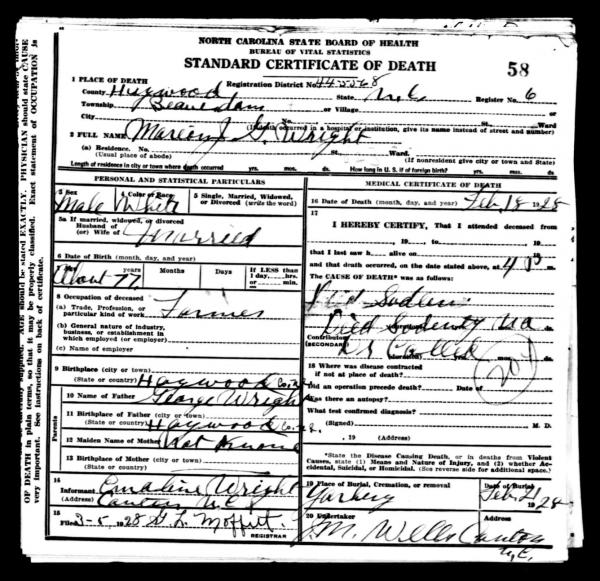 NORTH CAROLINA STATE BOARD OF HEALTH
BUREAU OF VITAL STATISTICS
STANDARD CERTIFICATE OF DEATH
58
1 PLACE OF DEATH
Registration District No. 44-5568
County Haywood State N.C. Register No. 6
Township Beaverdam
City (If death occurred in a hospital or institution, give its name instead of street and number) Ward
2 FULL NAME Marion J. G. Wright
(a) Residence. No. St. Ward.
(Usual place of abode) (If nonresident give city or town and State)
Length of residence in city or town where death occurred yrs. mos. ds. How long in U. S. if of foreign birth? yrs. mos. ds.
PERSONAL AND STATISTICAL PARTICULARS
3 Sex
Male
4 Color or Race
White
5 Single, Married, Widowed, or Divorced (write the word)
5a If married, widowed, or divorced
Husband of
(or) Wife of
Married
6 Date of Birth (month, day, and year)
7 years Months Days If LESS than
1 day, hrs.
or min.
About 77
8 Occupation of deceased
(a) Trade, Profession, or particular kind of work Farmer
(b) General nature of industry, business, or establishment in which employed (or employer)
(c) Name of employer
9 Birthplace (city or town)
(State or country) Haywood Co. N.C.
Parents
10 Name of Father George Wright
11 Birthplace of Father (city or town)
(State or country) Haywood Co. N.C.
12 Maiden Name of Mother Not Known
13 Birthplace of Mother (city or town)
(State or country)
14
Informant Emaline Wright
(Address) Canton N.C.
15
Filed 3-5, 1928 G. L. Moffitt.
REGISTRAR
MEDICAL CERTIFICATE OF DEATH
16 Date of Death (month, day, and year) Feb. 18 1928
17
I HEREBY CERTIFY, That I attended deceased from
, 19 , to , 19
that I last saw h alive on , 19
and that death occurred, on the date stated above, at 4 m.
The CAUSE OF DEATH* was as follows:
Died Sudden
Died Sudenty no
Contributory
(SECONDARY)
Dr Called
(duration) yrs. mos. ds.
18 Where was disease contracted
if not at place of death?
Did an operation precede death? Date of
Was there an autopsy?
What test confirmed diagnosis?
(Signed) M. D.
, 19 (Address)
*State the Disease Causing Death, or in deaths from Violent Causes, state (1) Means and Nature of Injury, and (2) whether Accidental, Suicidal, or Homicidal. (See reverse side for additional space.)
19 Place of Burial, Cremation, or removal
Date of Burial
Feb. 21 1928
20 Undertaker
J. M. Wells Canton
N.C.
OF DEATH in plain terms, so that it may be properly classified. Exact statement of OCCUPATION is
very important. See instructions on back of certificate.